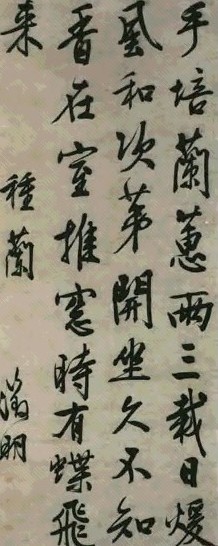 手培蘭蕙兩三載日煖
風和次第開坐久不知
香在室推窓時有蝶飛
来 種蘭 徵明